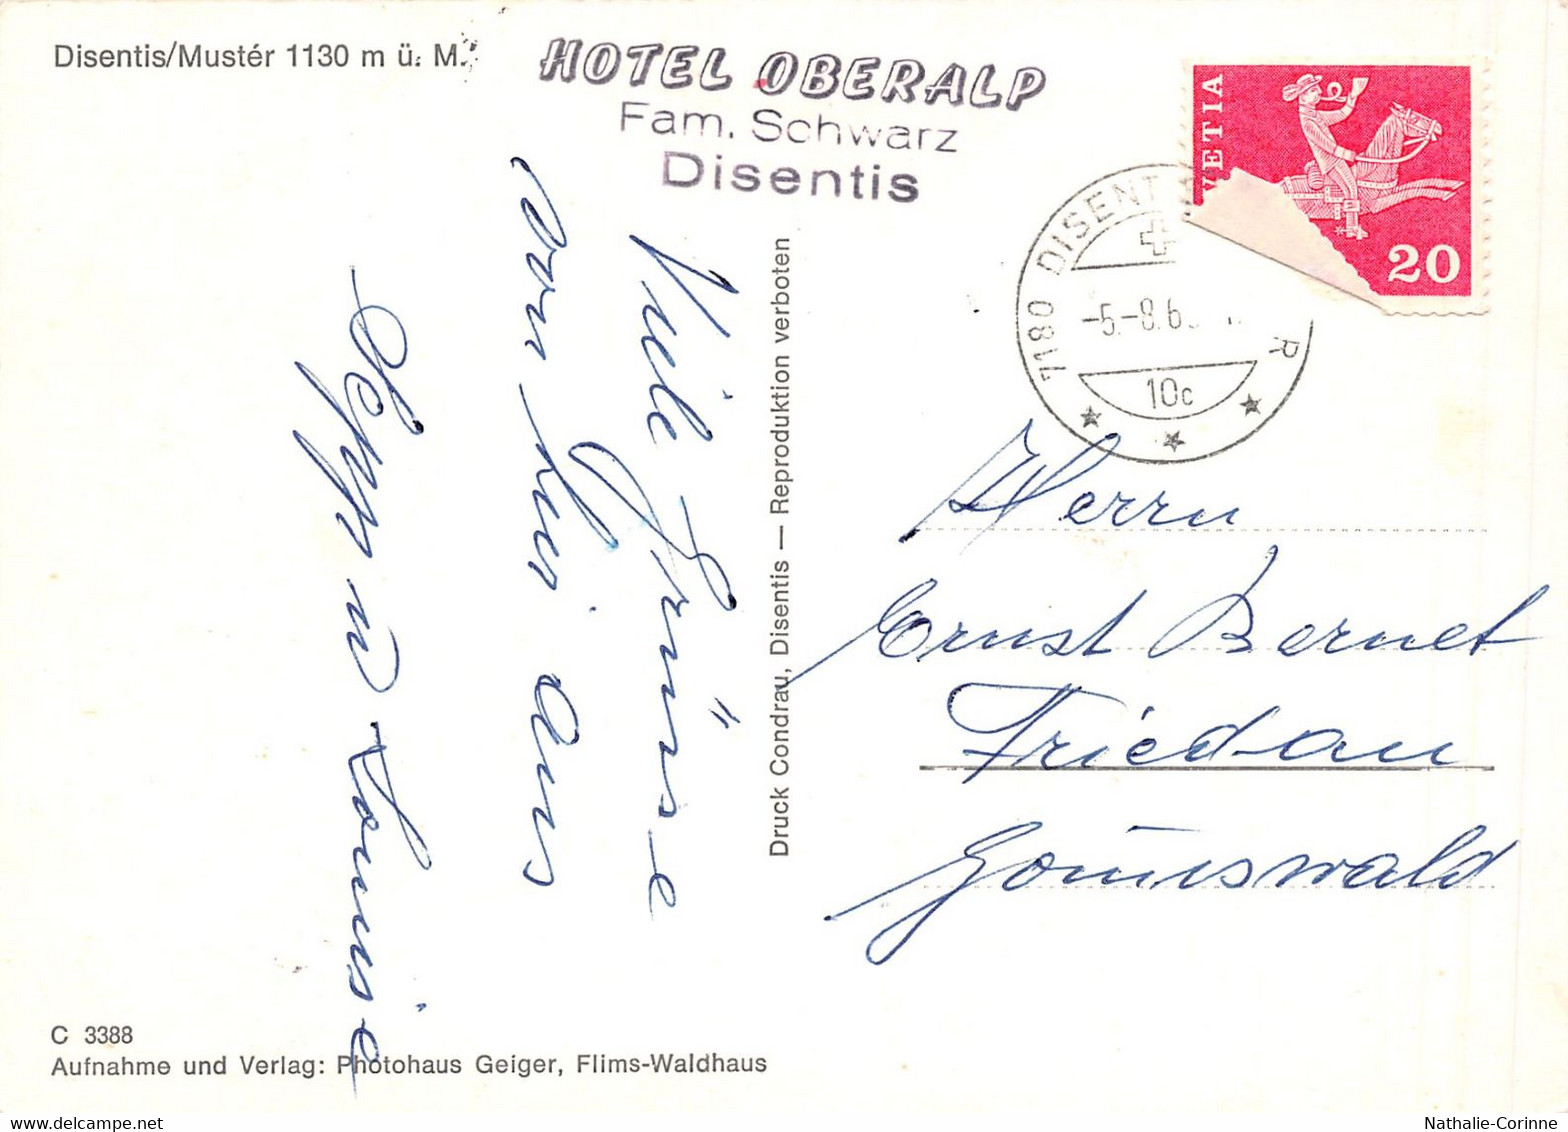 Disentis/Mustér 1130 m ü. M.
HOTEL OBERALP
Fam. Schwarz
Disentis
HELVETIA
20
7180 DISENT
-5.-8.6
R
10c
Viele Grüsse
von hier aus
Sepp u Louise
Druck Condrau, Disentis — Reproduktion verboten
Herrn
Ernst Bernet
Friedau
Gomiswald
C 3388
Aufnahme und Verlag: Photohaus Geiger, Flims-Waldhaus
Nathalie-Corinne